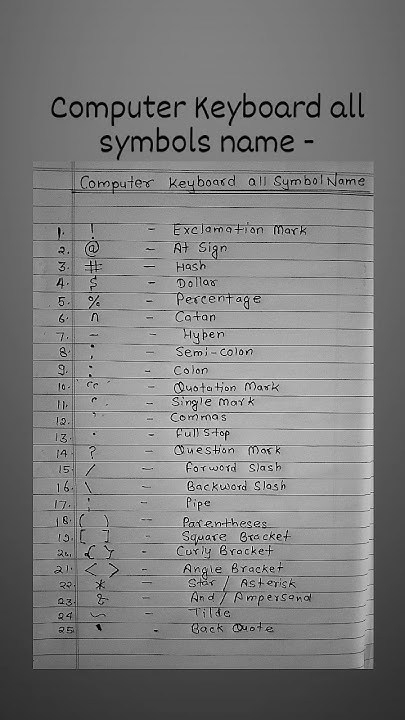 Computer Keyboard all
symbols name -
Computer Keyboard all Symbol Name
1. ! - Exclamation Mark
2. @ - At Sign
3. # - Hash
4. $ - Dollar
5. % - Percentage
6. ^ - Catan
7. - - Hypen
8. ; - Semi-colon
9. : - Colon
10. " " - Quotation Mark
11. ' - Single Mark
12. , - Commas
13. . - Full Stop
14. ? - Question Mark
15. / - Forword Slash
16. \ - Backword Slash
17. ¦ - Pipe
18. ( ) - Parentheses
19. [ ] - Square Bracket
20. { } - Curly Bracket
21. < > - Angle Bracket
22. * - Star / Asterisk
23. & - And / Ampersand
24. ~ - Tilde
25. ` - Back Quote